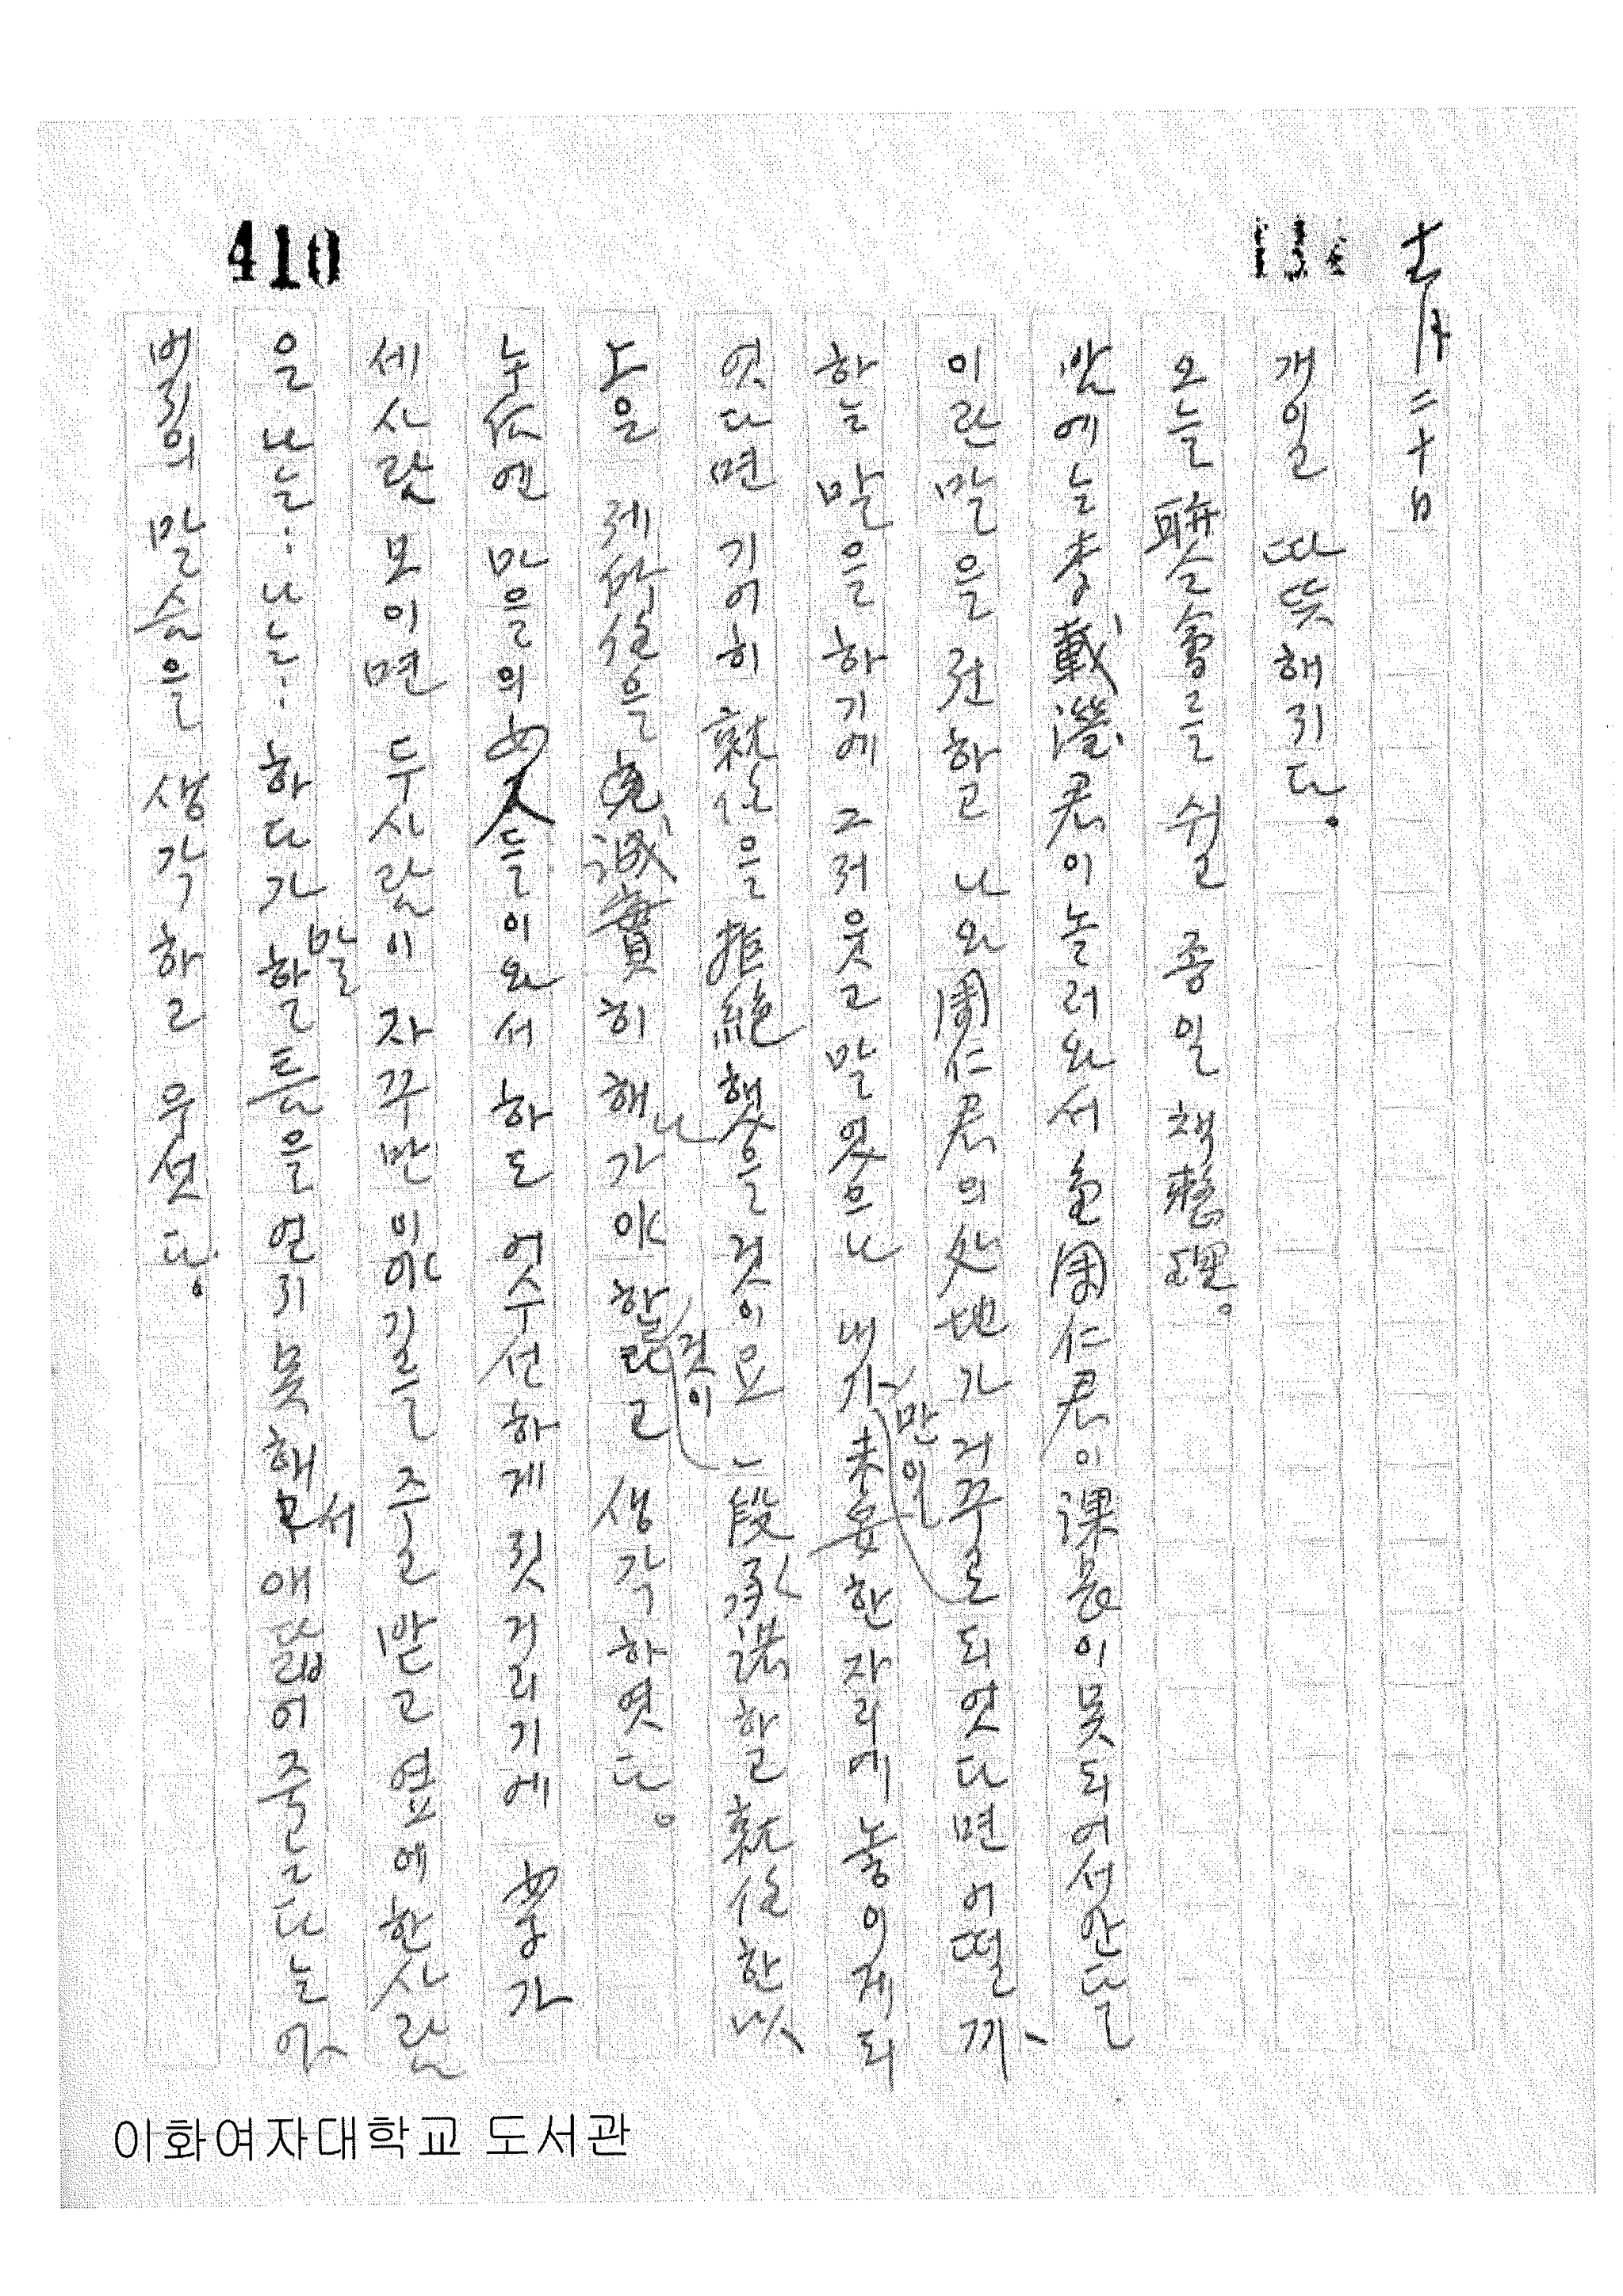 410
十一月二十日
개일 따뜻해지다.
오늘 聯合會를 쉬고 종일 책整理。
밤에는 李載瀅君이 놀러와서 金周仁君이 課長이 못되어서 안달
이란 말을 전하고 나와 周仁君의 处地가 거꾸로 되었다면 어떨까
하는 말을 하기에 그저 웃고 말었으나 내가 만일 한 자리에 놓이게 되
엿다면 기어히 就任을 拒絶했을 것이요 一段 承諾하고 就任한 以
上은 제 所任을 誠實히 해 나가야 할 것이라고 생각하였다。
农 엔 마을의 女人들이 와서 하도 어수선하게 짓거리기에
세 사람 모이면 두 사람이 자꾸만 이야기를 주고 받고 옆에 한 사람
은 나는… 나는… 하다가 말할 틈을 얻지 못해서 애닯어 죽는다는 어
버지의 말슴을 생각하고 우섯다.
이화여자대학교 도서관